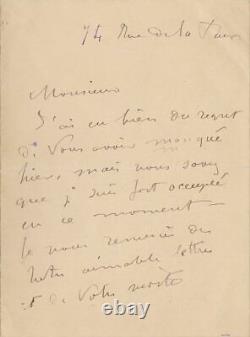 74 Rue de la Tour
Monsieur
J'ai eu bien du regret
de vous avoir manqué
hier, mais vous savez
que je suis fort occupé
en ce moment —
Je vous remercie de
votre aimable lettre
et de votre
© ebay